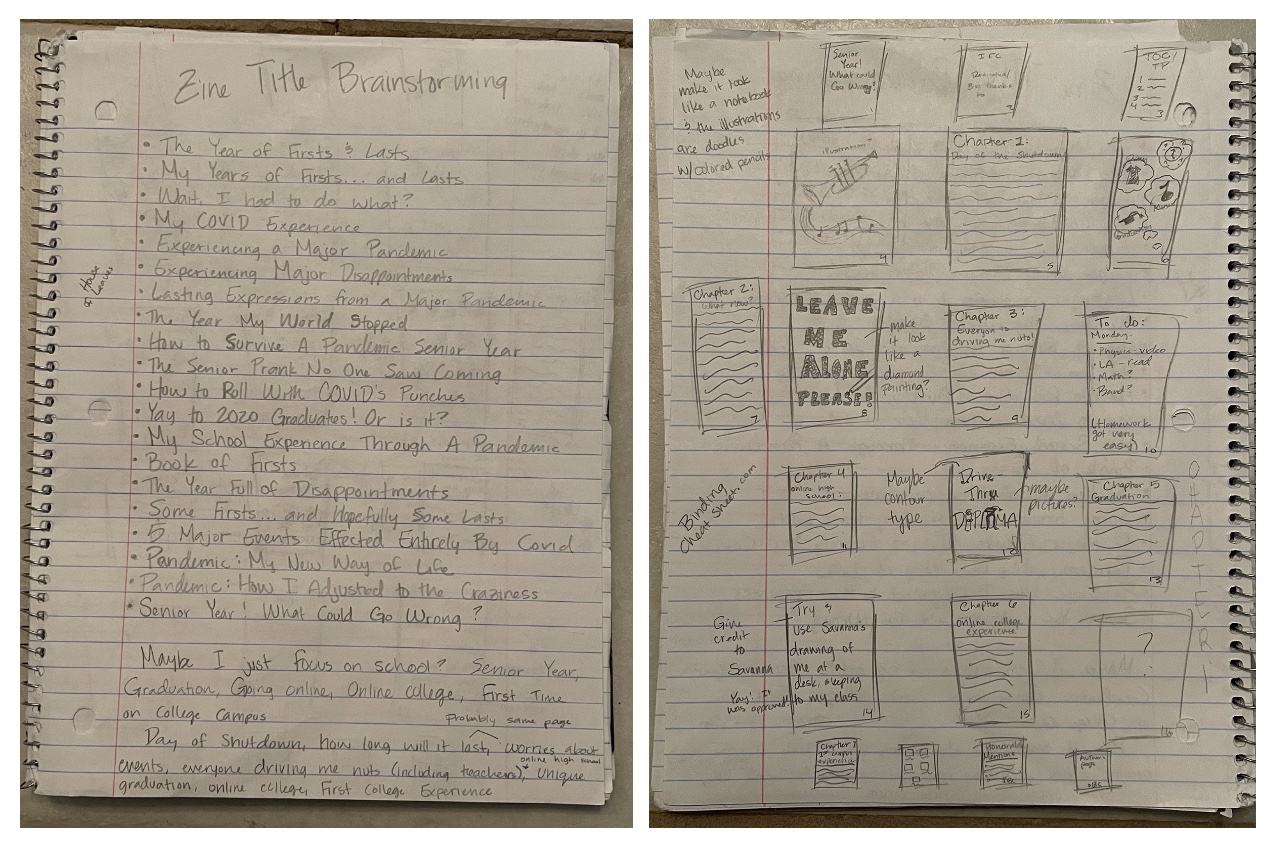 Zine Title Brainstorming
• The Year of Firsts & Lasts
• My Years of Firsts... and Lasts
• Wait, I had to do what?
• My COVID Experience
• Experiencing a Major Pandemic
• Experiencing Major Disappointments
• Lasting Expressions from a Major Pandemic
• The Year My World Stopped
• How to Survive A Pandemic Senior Year
• The Senior Prank No One Saw Coming
• How to Roll With COVID's Punches
• Yay to 2020 Graduates! Or is it?
• My School Experience Through A Pandemic
• Book of Firsts
• The Year Full of Disappointments
• Some Firsts... and Hopefully Some Lasts
• 5 Major Events Effected Entirely By Covid
• Pandemic: My New Way of Life
• Pandemic: How I Adjusted to the Craziness
• Senior Year! What Could Go Wrong?
House
of Leaves
Maybe I just focus on school? Senior Year,
Graduation, Going online, Online college, First Time
on College Campus
probably same page
Day of Shutdown, how long will it last, worries about
online high school
events, everyone driving me nuts (including teachers), unique
graduation, online college, First College Experience
Maybe
make it look
like a notebook
& the illustrations
are doodles
w/colored pencils
Senior
Year!
What could
Go Wrong?
1
IFC
Big thanks
to
2
TOC/
TP
1
2
3
4
3
illustration
4
Chapter 1:
Day of the Shutdown
5
6
Chapter 2:
What now?
7
LEAVE
ME
ALONE
PLEASE!
8
make
it look
like a
diamond
painting?
Chapter 3:
Everyone is
driving me nuts!
9
To do:
Monday
• Physics - video
• LA - read
• Math?
• Band?
(Homework
got very
easy)
10
Binding
Cheat Sheet.com
Chapter 4
online high
school?
11
Maybe
contour
type
Drive-
Thru
DIPLOMA
12
maybe
pictures?
Chapter 5
Graduation
13
CHAPTER 1
Give
credit
to
Savanna
Yay! It
was approved!
Try &
use Savanna's
drawing of
me at a
desk, sleeping
to my class
14
Chapter 6
online college
experience
15
?
16
Chapter 7
1st campus
experience
Honorable
Mentions
IBC
Author's
page
OBC